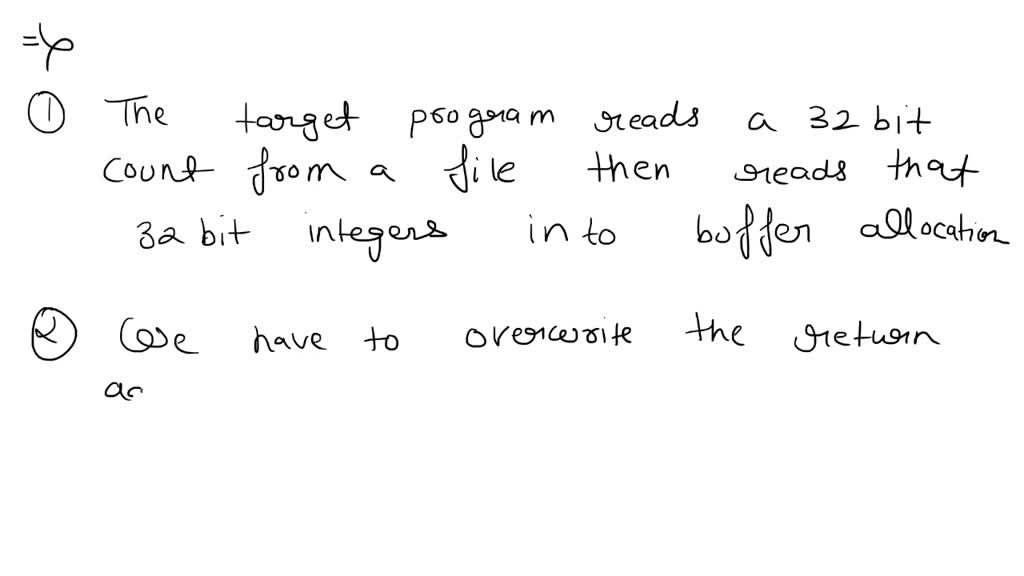 =>
① The target program reads a 32 bit
count from a file then reads that
32 bit integers in to buffer allocation
② We have to overwrite the return
ad